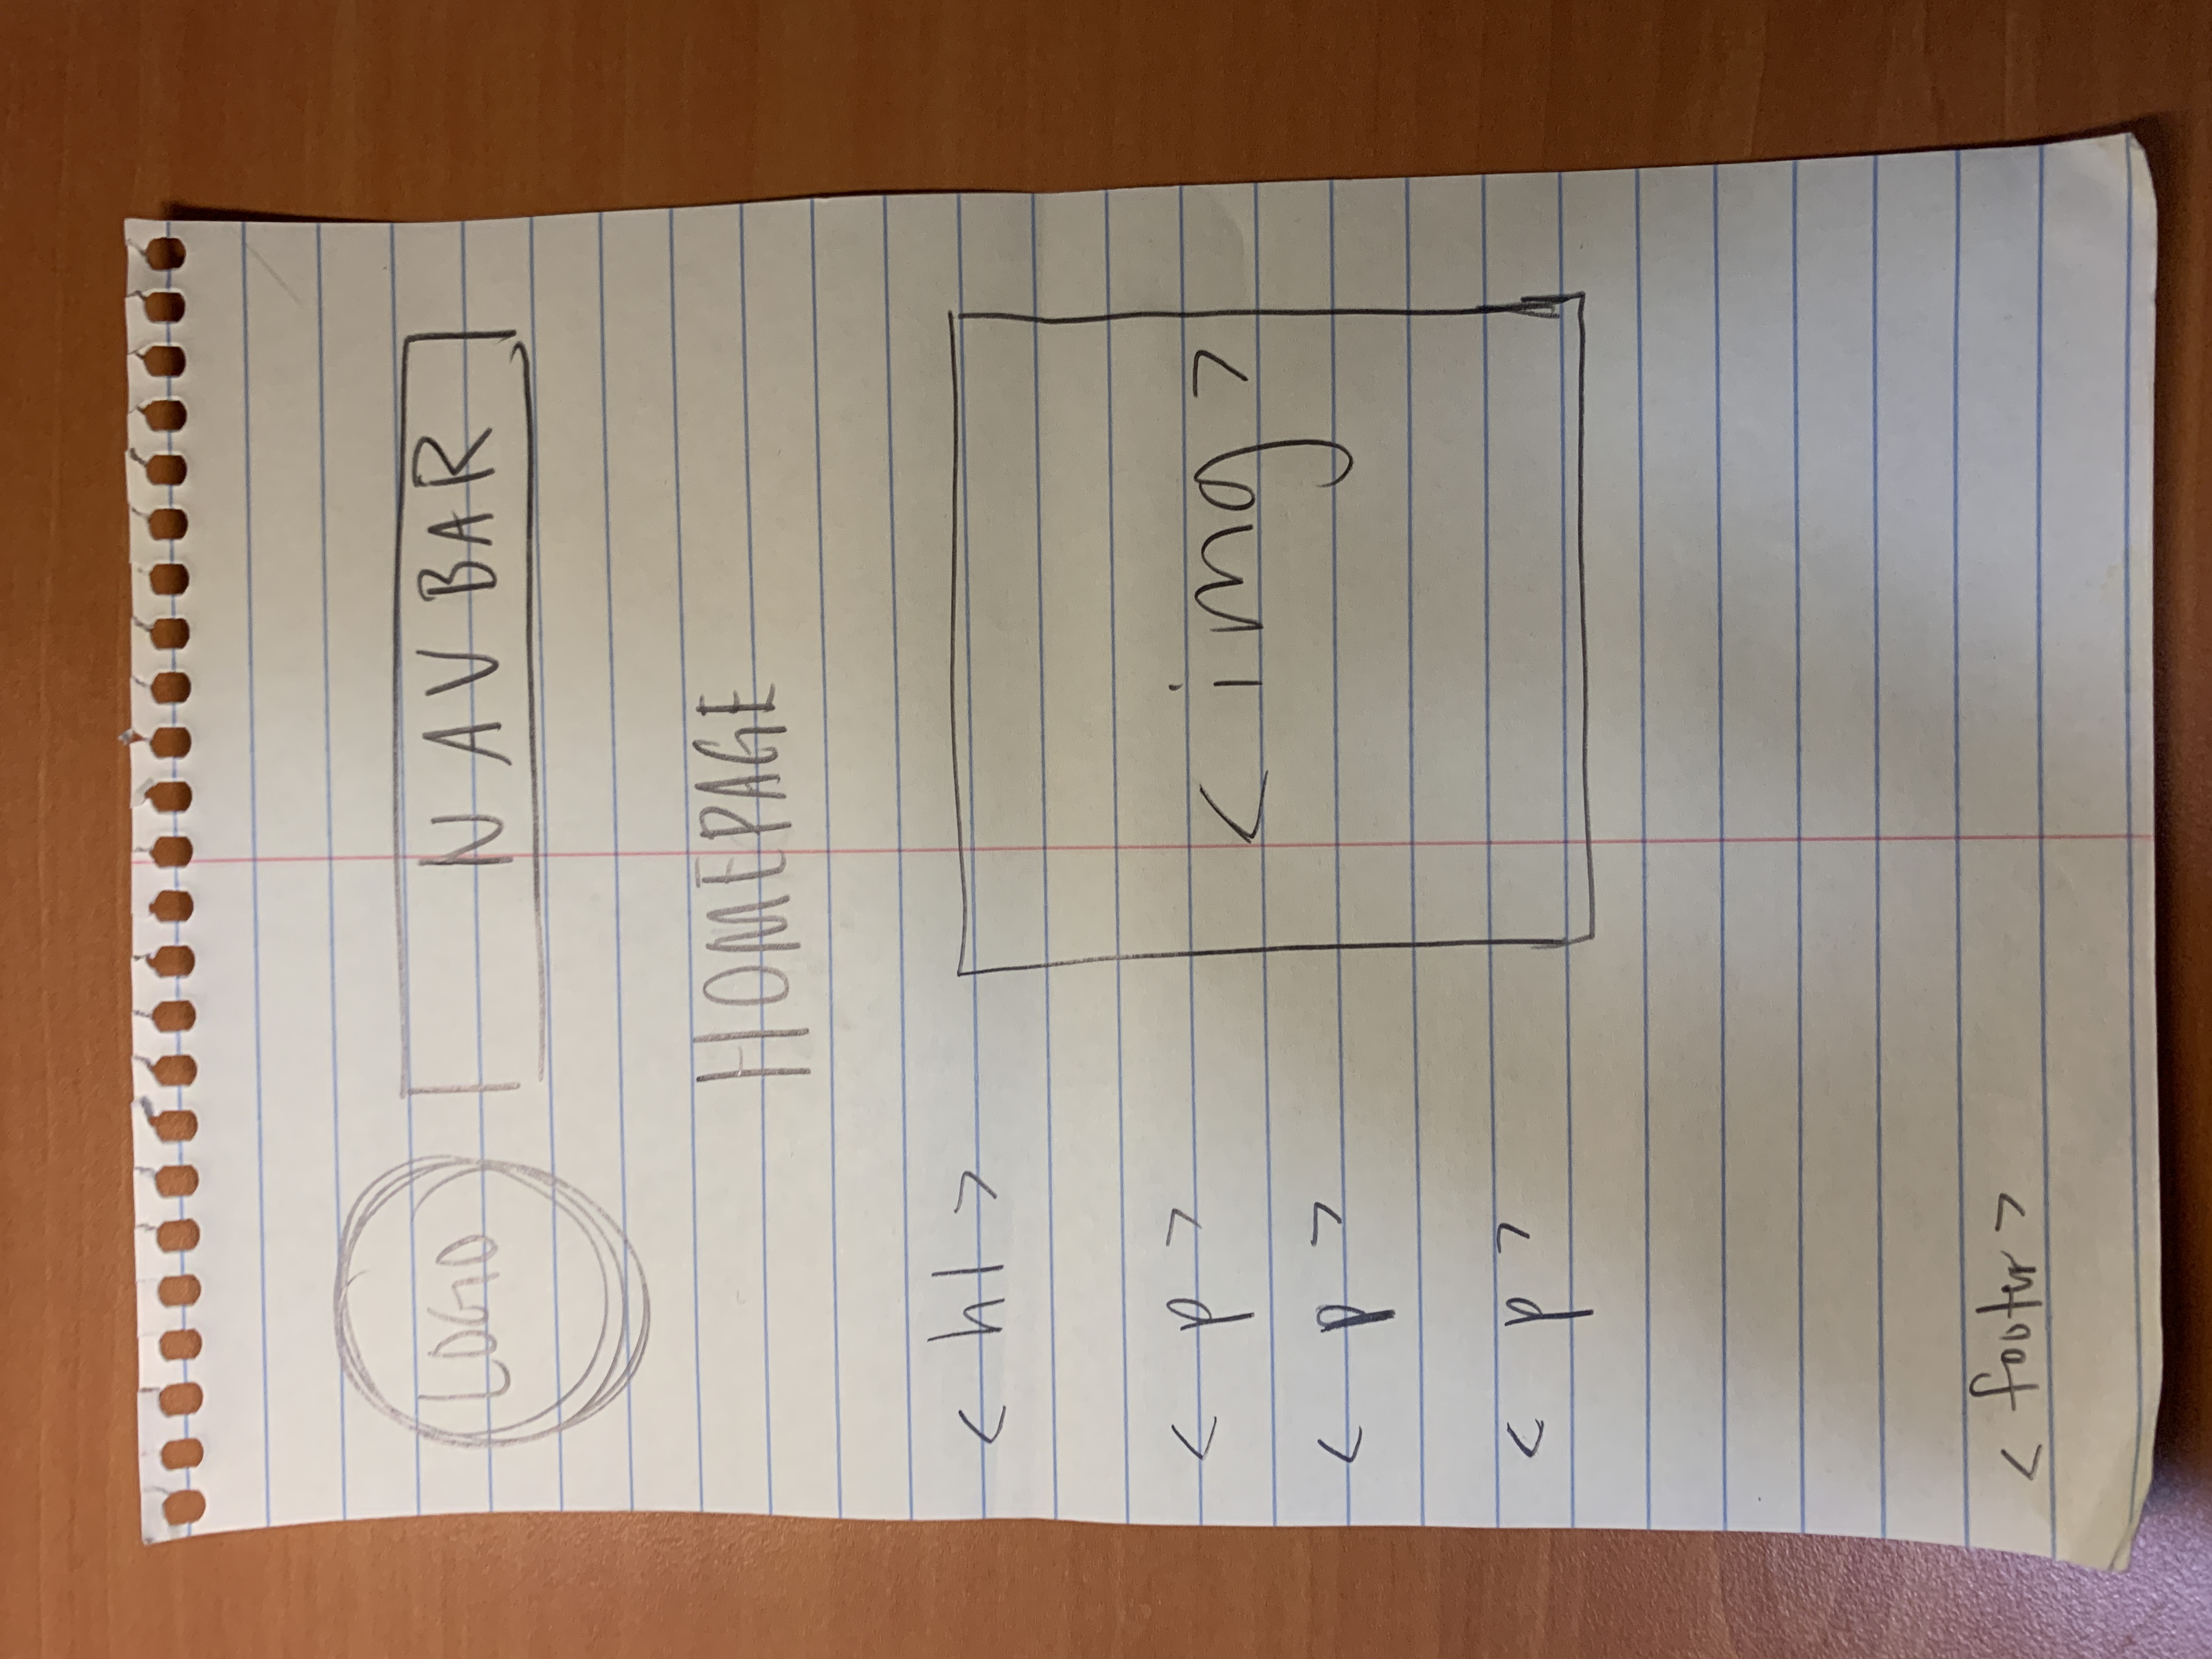 LOGO
NAVBAR
HOMEPAGE
<h1>
<p>
<img>
<p>
<p>
<footer>